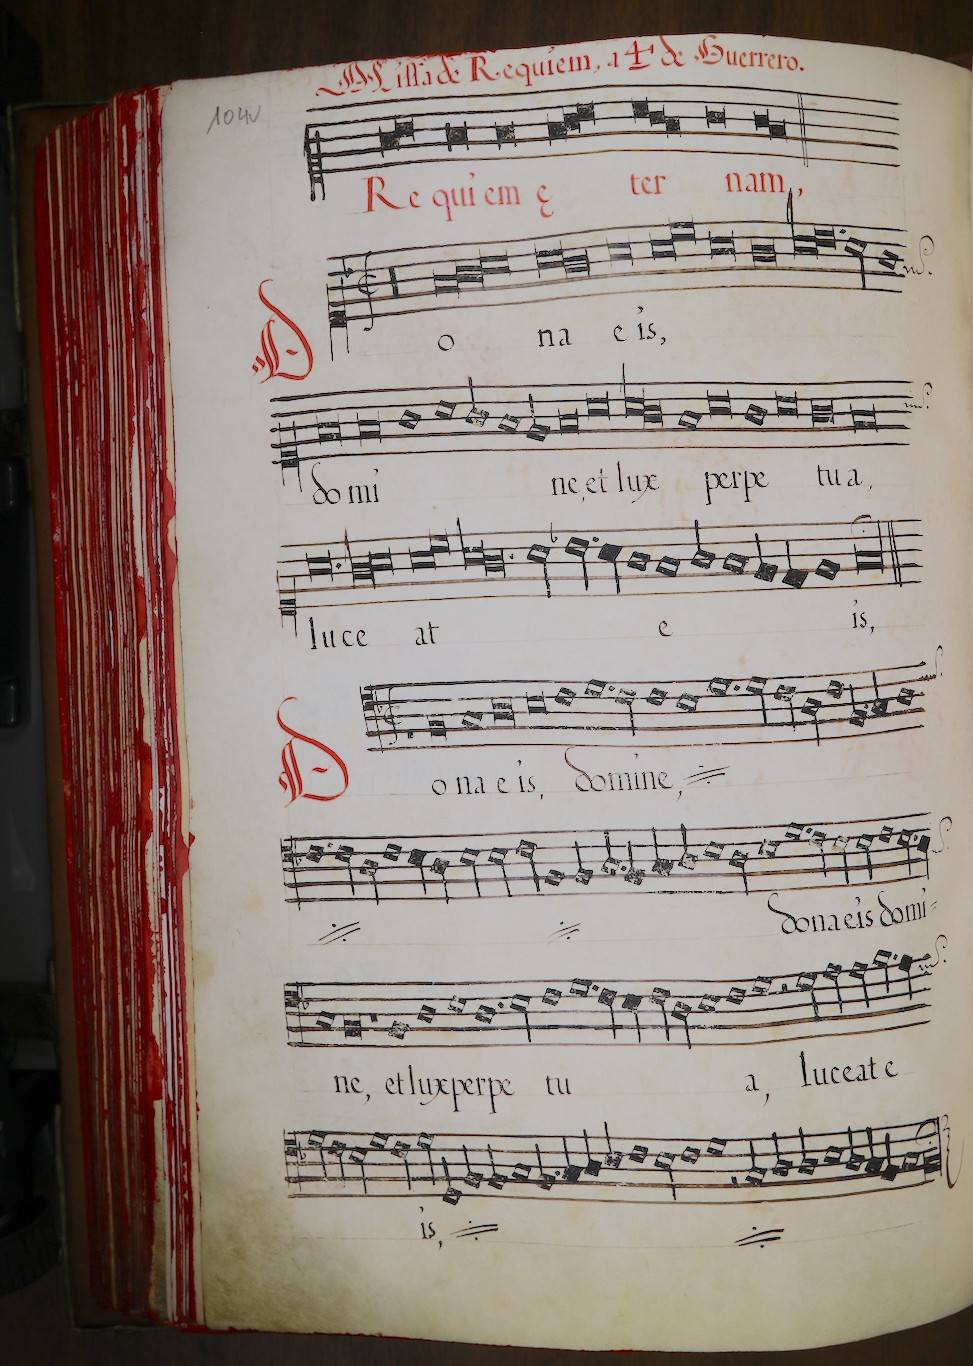 Missa de Requiem, a 4 de Guerrero.
104v
Requiem ę ter nam,
Do na eis,
domi ne, et lux perpe tua,
luce at e is,
Dona eis, domine,
dona eis domi=
ne, et lux perpe tu a, luceat e
is,